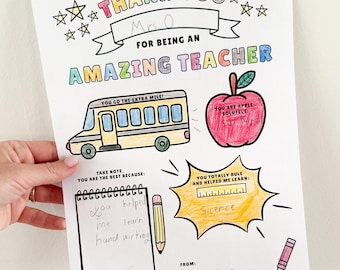 THANK YOU
Mrs. O
FOR BEING AN
AMAZING TEACHER
YOU GO THE EXTRA MILE!
YOU ARE APPLE-
SOLUTELY
TAKE NOTE,
YOU ARE THE BEST BECAUSE:
YOU TOTALLY RULE
AND HELPED ME LEARN:
you helped
me learn
hand writing
Science
FROM: